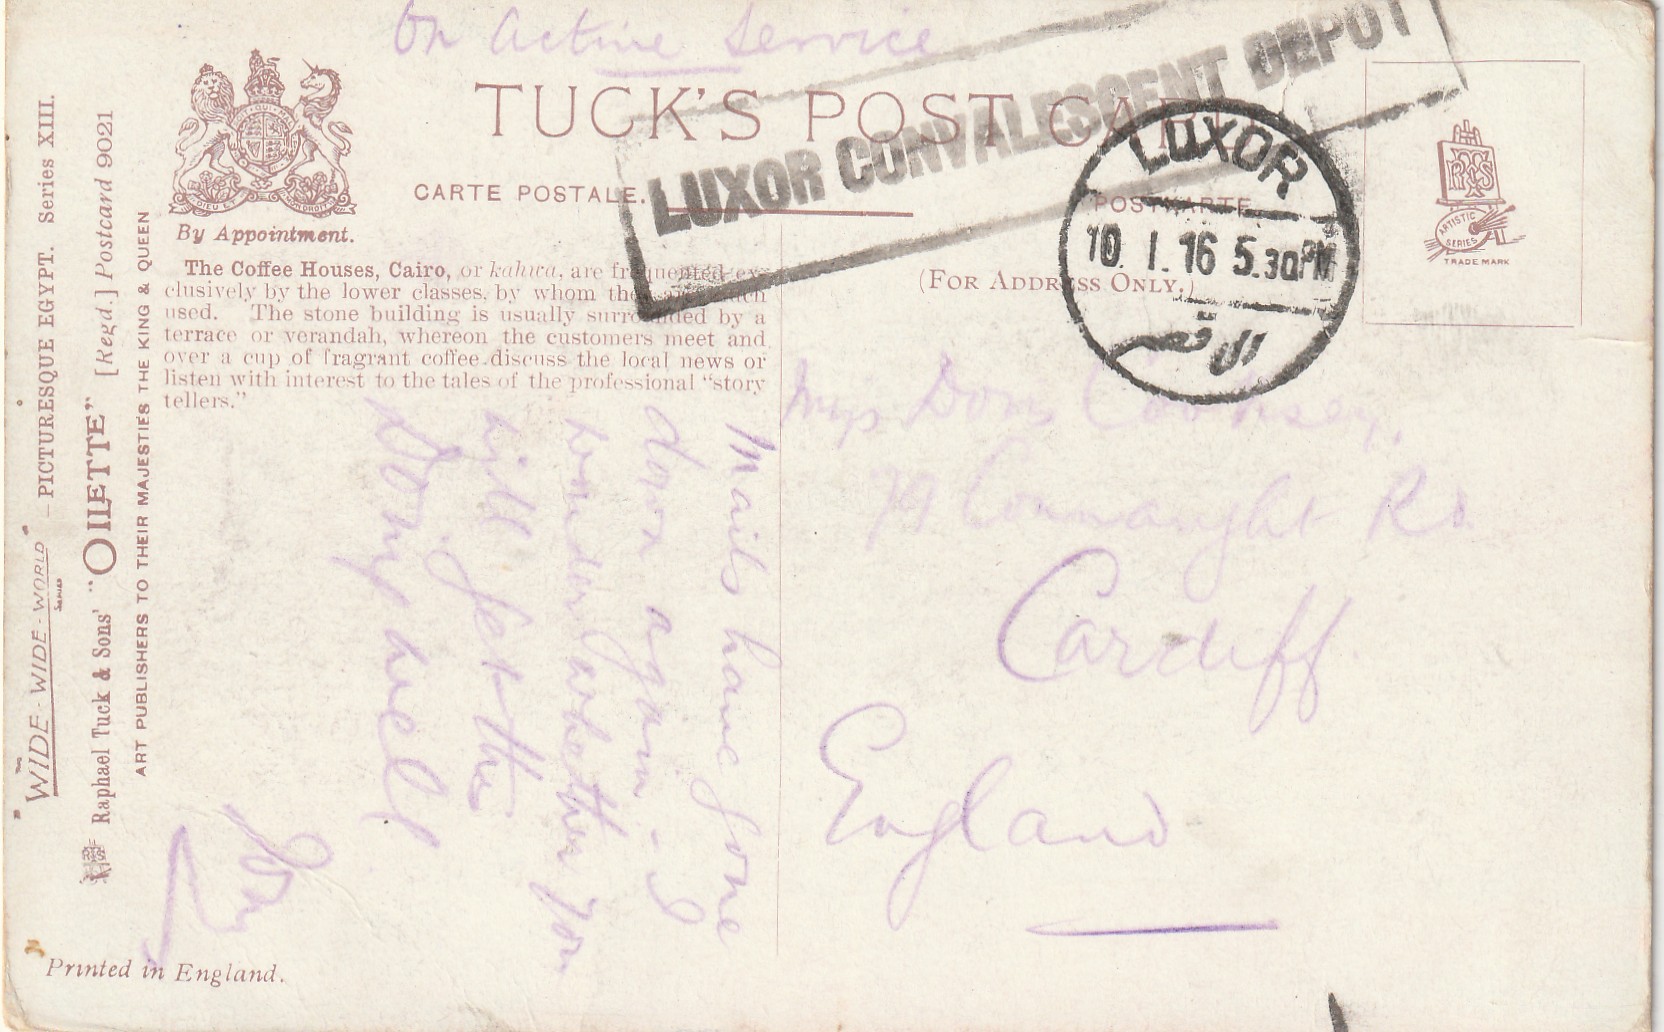 On Active Service
TUCK'S POST CARD
CARTE POSTALE.
POSTKARTE
(FOR ADDRESS ONLY.)
LUXOR CONVALESCENT DEPOT
LUXOR
10. I. 16 5.30PM
الاقصر
DIEU ET MON DROIT
By Appointment.
The Coffee Houses, Cairo, or kahwa, are frequented ex-
clusively by the lower classes, by whom they are much
used. The stone building is usually surrounded by a
terrace or verandah, whereon the customers meet and
over a cup of fragrant coffee discuss the local news or
listen with interest to the tales of the professional "story
tellers."
"WIDE-WIDE-WORLD" SERIES - PICTURESQUE EGYPT. Series XIII.
Raphael Tuck & Sons' "OILETTE" [Regd.] Postcard 9021
ART PUBLISHERS TO THEIR MAJESTIES THE KING & QUEEN
Mails have gone
down again. I
wonder whether you
will get this
Going well
Printed in England.
RTS
ARTISTIC SERIES
TRADE MARK
Miss Doris
79 Connaught Rd
Cardiff
England